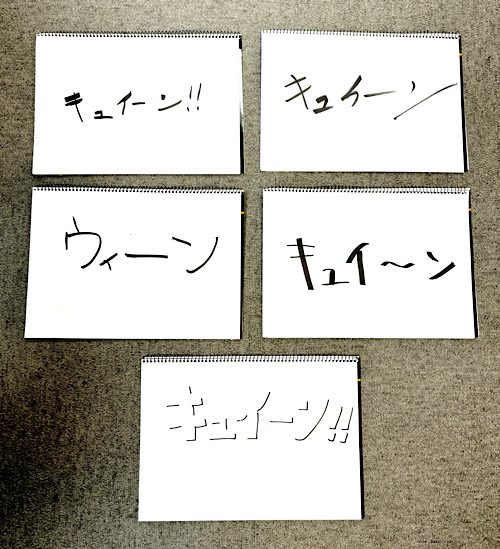 キュイーン!!
キュイーン
ウィーン
キュイ〜ン
キュイーン!!